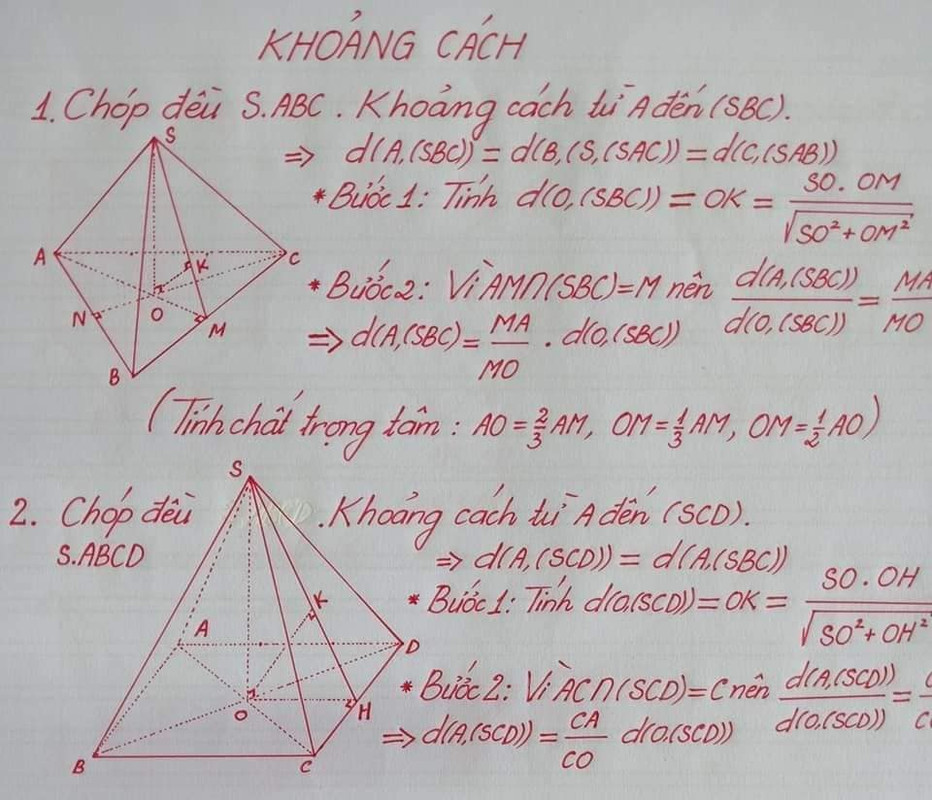 KHOẢNG CÁCH
1. Chóp đều S.ABC. Khoảng cách từ A đến (SBC).
⇒ d(A,(SBC)) = d(B,(S,(SAC)) = d(C,(SAB))
* Bước 1: Tính d(O,(SBC)) = OK = SO.OM / √SO²+OM²
* Bước 2: Vì AM∩(SBC)=M nên d(A,(SBC)) / d(O,(SBC)) = MA / MO
⇒ d(A,(SBC) = MA / MO . d(O,(SBC))
S
A
C
K
N
O
M
B
(Tính chất trọng tâm : AO = 2/3 AM, OM = 1/3 AM, OM = 1/2 AO)
2. Chóp đều S.ABCD. Khoảng cách từ A đến (SCD).
⇒ d(A,(SCD)) = d(A,(SBC))
* Bước 1: Tính d(O,(SCD)) = OK = SO.OH / √SO²+OH²
* Bước 2: Vì AC∩(SCD)=C nên d(A,(SCD)) / d(O,(SCD)) =
⇒ d(A,(SCD)) = CA / CO d(O,(SCD))
S
K
A
D
O
H
B
C